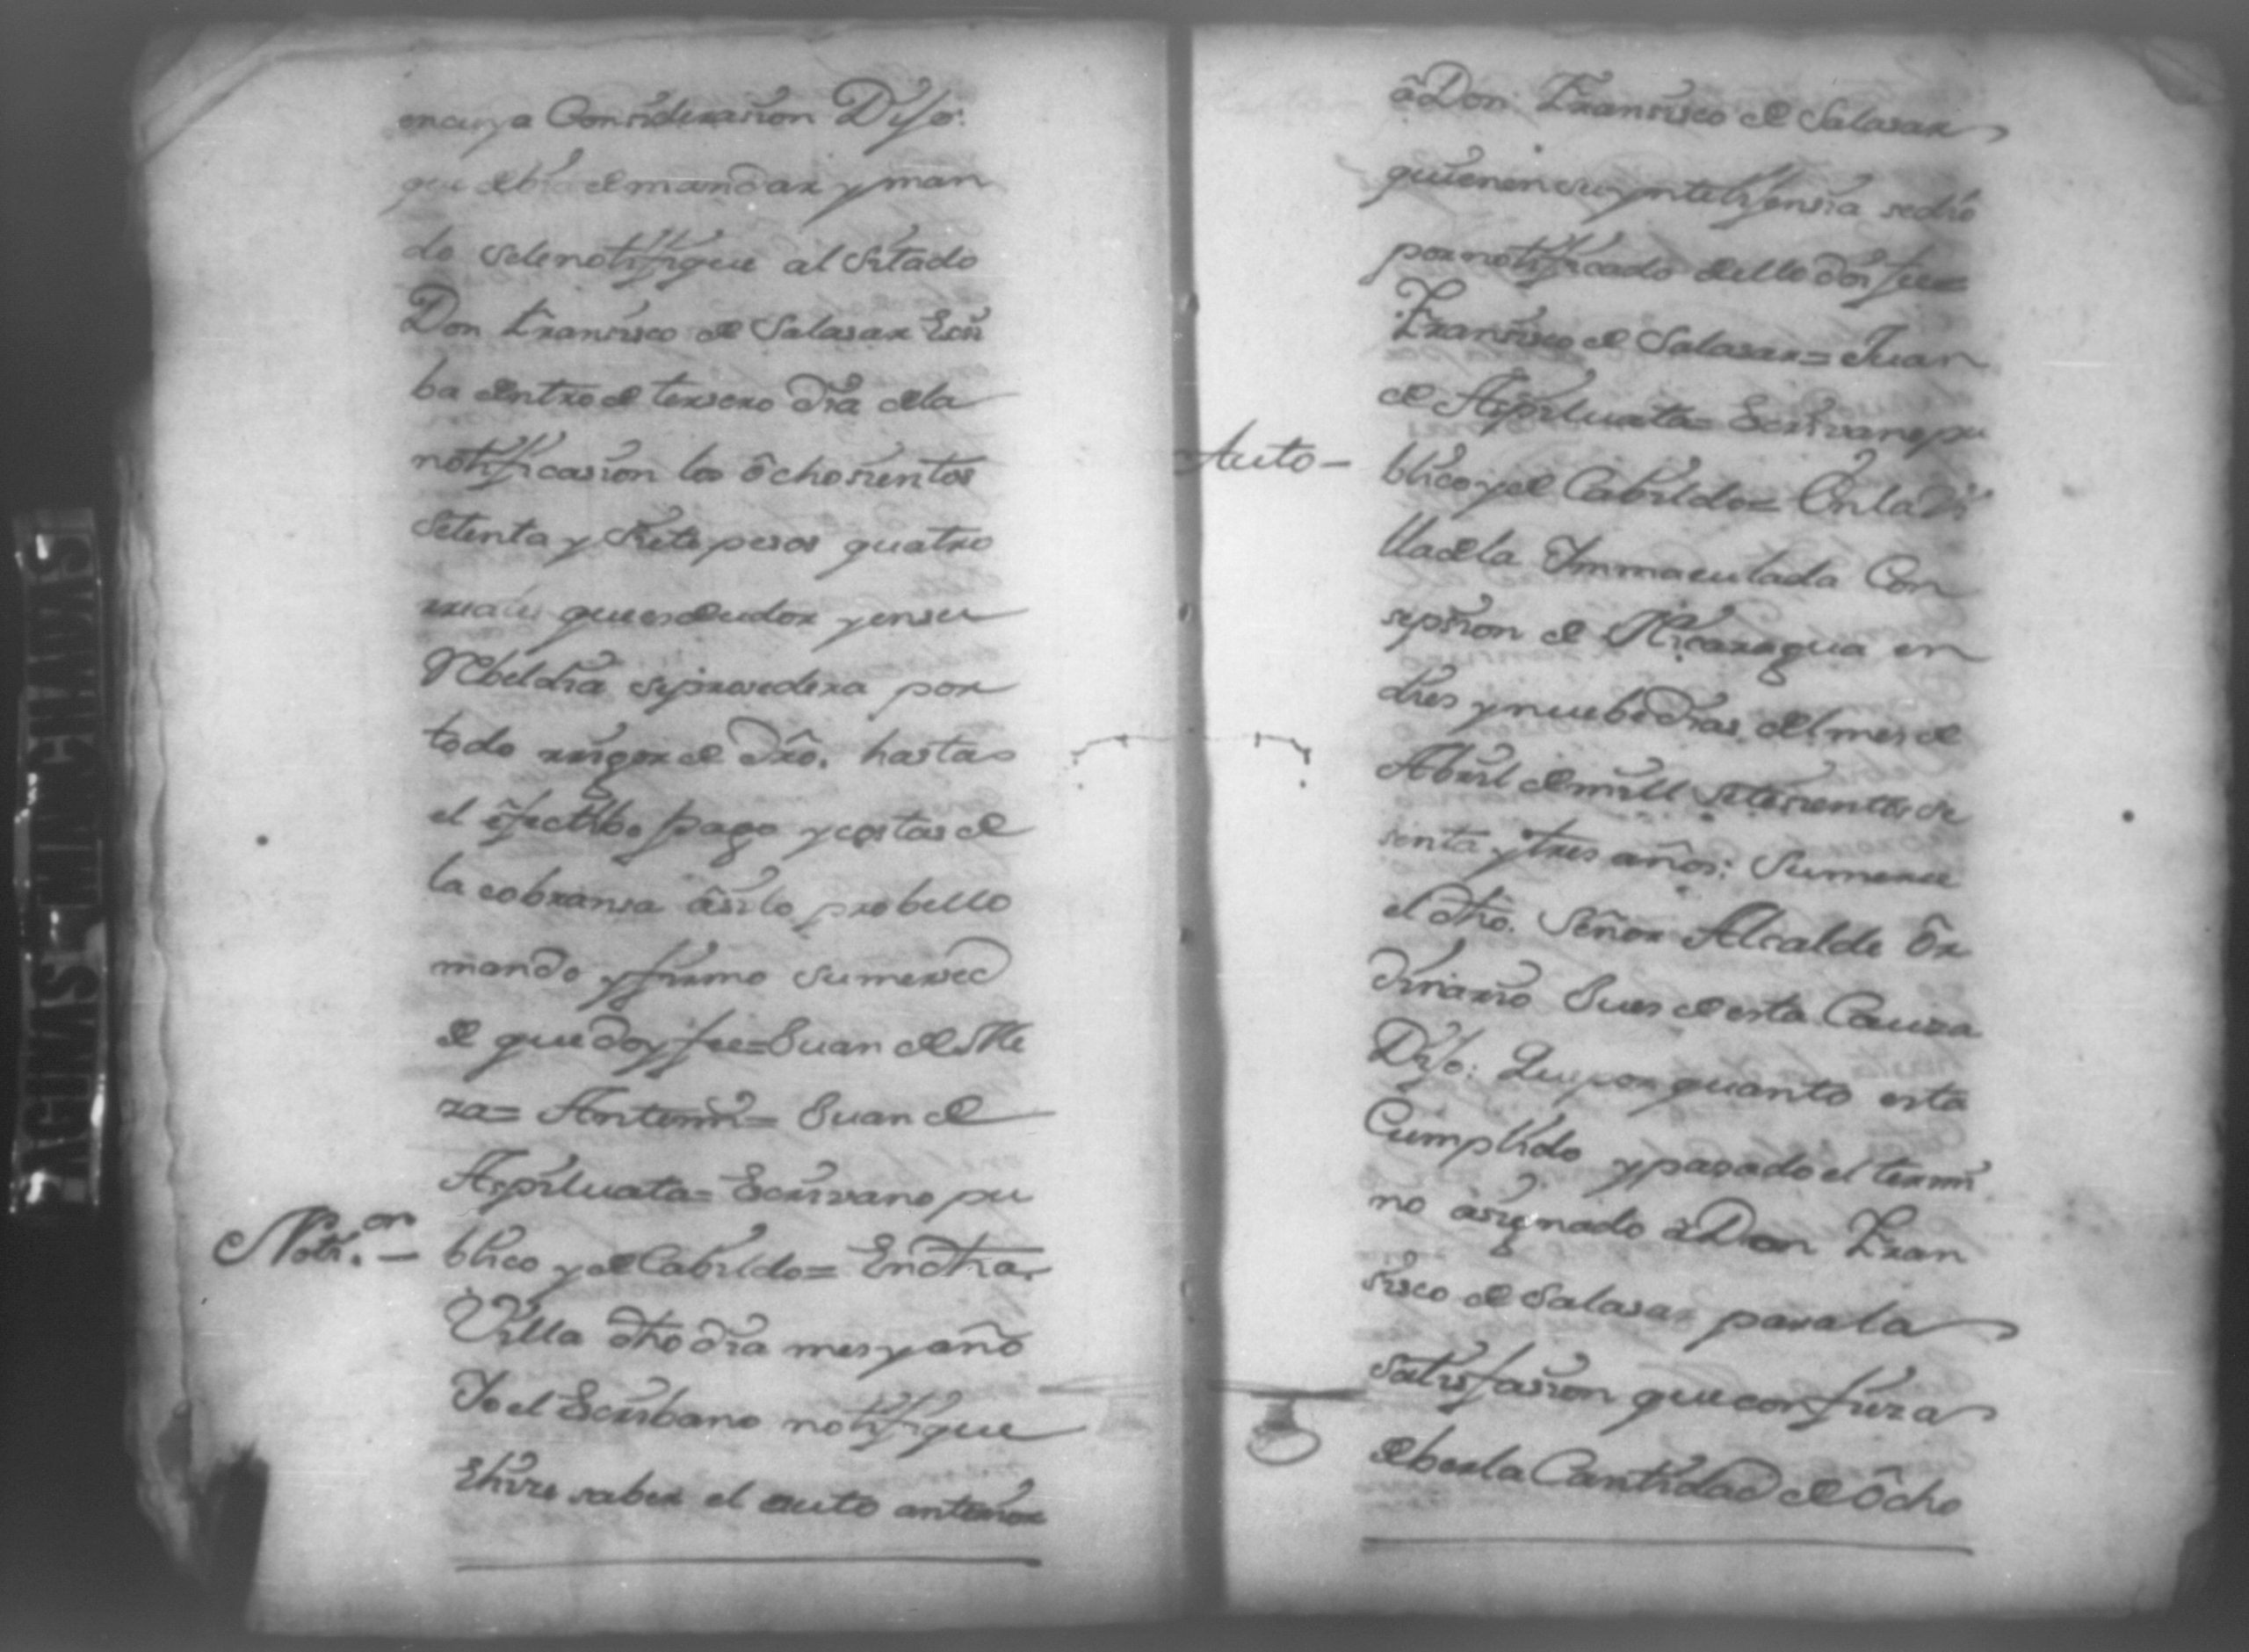 encuya Considerasion Dijo:
que debia demandar y man
do selenotifique al Sitado
Don Fransisco de Salasar Escri
ba dentro de tersero dia dela
notificasion los ôchosientos
Setenta y Siete pesos quatro
rreales que es deudor y ensu
Rebeldia seprosedera por
todo rrigor de dro. hasta
el êfectibo pago y costas de
la cobransa âsilo probello
mando y firmo Sumersed
de que doy fee= Juan de Me
za= Antemi= Juan de
Aspilcueta= Escrivano pu
Noti.on —
blico y de Cabildo= En dha.
Villa dho dia mes y año
Yo el Escribano notifique
Ehize saber el auto anterior
â Don Fransisco de Salasar
quienensu yntelijensia sedio
por notificado dello doi fee=
Fransisco de Salasar= Juan
de Aspilcueta= Escrivano pu
Auto —
blico y de Cabildo= En la Vi
lla dela Immaculada Con
sepsion de Nicaragua en
dies y nuebe dias del mes de
Abril de mill setesientos se
senta y tres años: Sumersed
el dho. Señor Alcalde ôr
dinario Jues de esta Cauza
Dijo: Que por quanto esta
Cumplido y pasado el termi
no asignado â Don Fran
sisco de Salasar para la
satisfasion que confieza
deber la Cantidad de ôcho